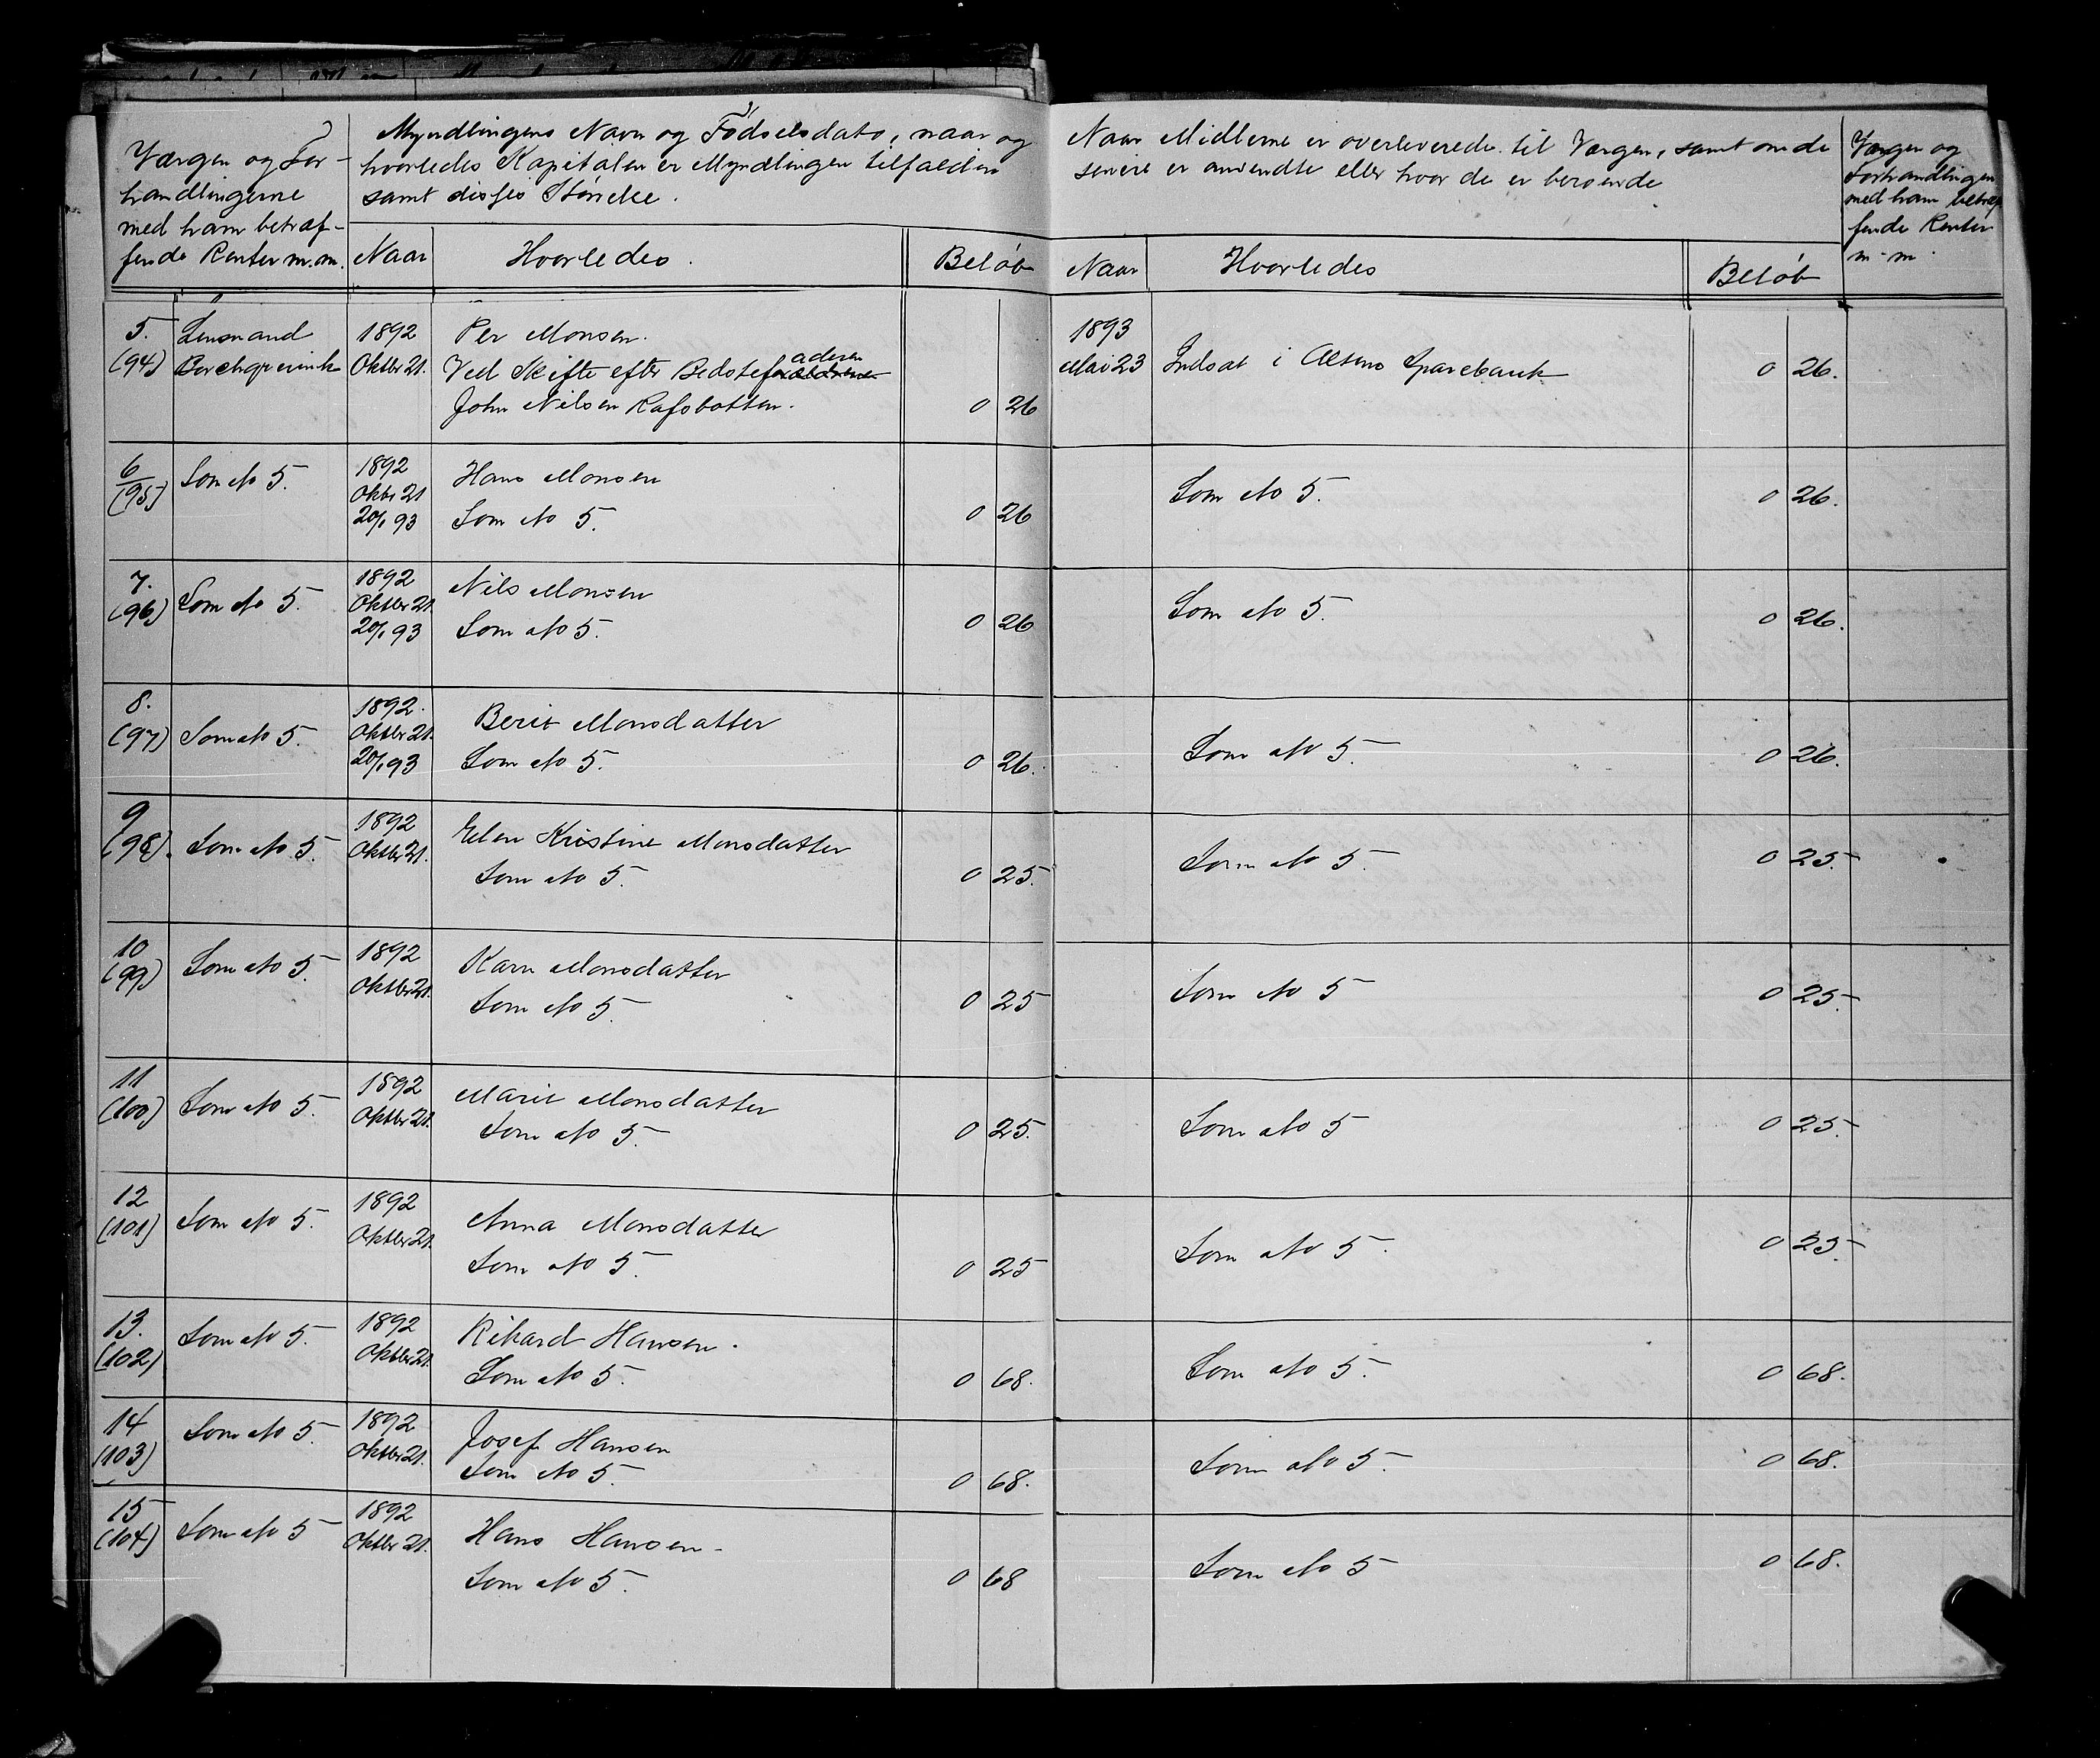 Værgen og For-
handlingerne
med ham betræf-
fende Renter m.m.
Myndlingens Navn og Fødselsdato, naar og
hvorledes Kapitalen er Myndlingen tilfalden
samt disses Størrelse.
Naar
Hvorledes.
Beløb
Naar Midlerne er overleverede til Værgen, samt om de
senere er anvendte eller hvor de er beroende
Naar
Hvorledes
Beløb
Værgen og
Forhandlingen
med ham betræf
fende Renter
m-m.
5. Lensmand 1892 Per Monsen. 1893
(94) Oktbr 21. Ved Skifte efter Bedstefaderen Mai 23 Indsat i Altens Sparebank 0 26.
John Nilsen Rafsbotten. 0 26
6 Som No 5. 1892 Hans Monsen
(95) Oktbr 21 Som No 5. 0 26.
20/1 93 Som No 5. 0 26
7. 1892 Nils Monsen
(96) Som No 5. Oktbr 21. Som No 5. 0 26.
20/1 93 Som No 5. 0 26
8. 1892. Berit Monsdatter
(97) Som No 5. Oktbr 21. Som No 5. 0 26.
20/1 93 Som No 5. 0 26.
9 1892 Elen Kristine Monsdatter
(98). Som No 5. Oktbr 21. Som No 5. 0 25.
Som No 5. 0 25.
10 1892 Karn Monsdatter
(99) Som No 5. Oktbr 21. Som No 5 0 25.
Som No 5. 0 25
11 1892 Marit Monsdatter
(100) Som No 5. Oktbr 21. Som No 5 0 25.
Som No 5. 0 25.
12 1892 Anna Monsdatter
(101) Som No 5. Oktbr 21. Som No 5. 0 25.
Som No 5. 0 25
13. Som No 5. 1892 Rikard Hansen.
(102) Oktbr 21. Som No 5. 0 68.
Som No 5. 0 68.
14 Som No 5. 1892 Josef Hansen
(103) Oktbr 21. Som No 5. 0 68.
Som No 5. 0 68.
15 Som No 5 1892 Hans Hansen-
(104) Oktbr 21. Som No 5 0 68.
Som No 5. 0 68